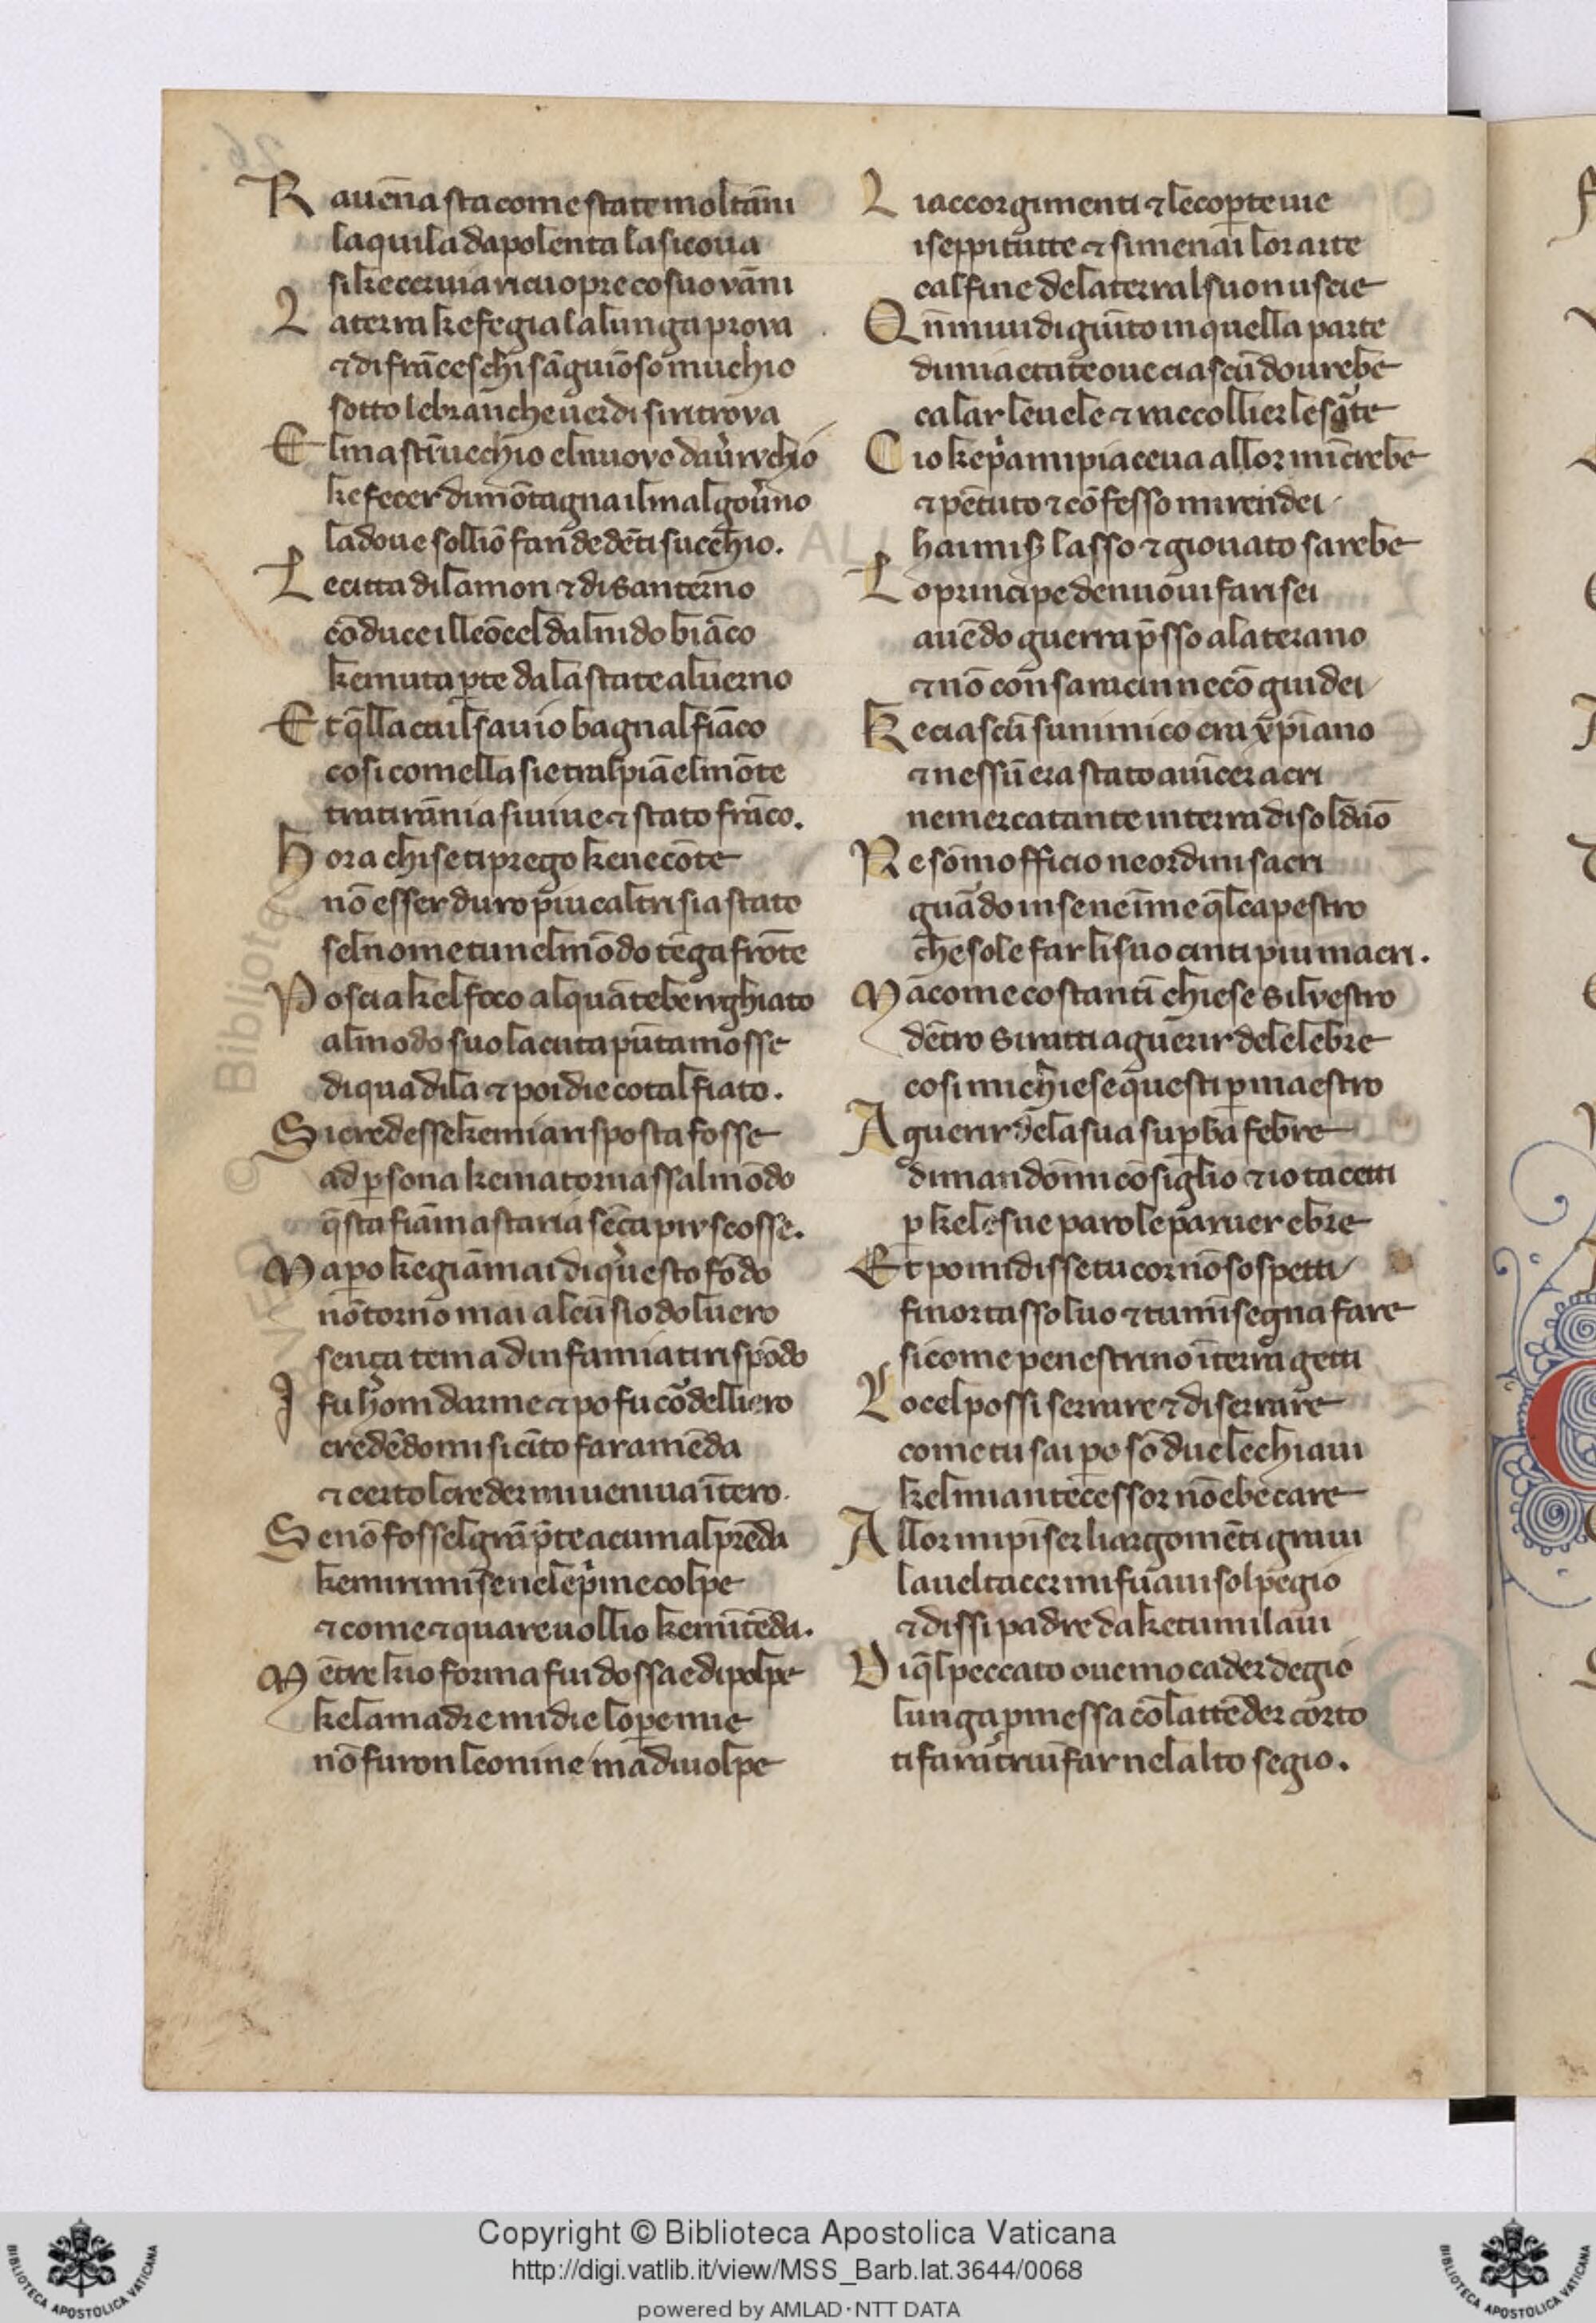 Rauēna sta come state molt āni
laquila da polenta la si cova
si ke cervia ricuopre co suo vāni
La terra ke fe gia la lunga prova
⁊ di frāceschi sāguiōso muchio
sotto le branche verdi si ritrova
El mastī vechio el nuovo da v̄rvchio
ke fecer di mōtagna il mal gov̄no
la dove solliō fan de dēti succhio.
Le citta di lamon ⁊ di santerno
cōduce il leōcel dal nido biāco
ke muta pte da la state al verno
Et q̄lla cui l savio bagna l fiāco
cosi comella sie tral piā el mōte
tra tirānia si vive ⁊ stato frāco.
Hora chi se ti prego ke ne cōte
nō esser duro piu caltri sia stato
sel nome tuo nel mōdo tēga frōte
Poscia kel foco alquāte be rvghiato
al modo suo lacuta pūta mosse
di qua di la ⁊ poi die cotal fiato.
Si credesse ke mia risposta fosse
ad psona ke mai tornassal mōdo
q̄sta fiāma staria sēça piv scosse.
Ma po ke giāmai di questo fōdo
nō torno mai alcū siodo l vero
sença tema dinfamia ti rispōdo
I fu hom darme ⁊ po fu cōdelliero
credēdomi si cīto fare amēda
⁊ certo l creder mi veniva ītero.
Se nō fossel grā p̄te a cui mal prēda
ke mi rimise ne le p̄me colpe
⁊ come ⁊ quare vollio ke mītēda.
Mētre kio forma fui dossa e di polpe
ke la madre mi die lope mie
nō furon leonine ma di volpe
Li accorgimenti ⁊ le copte vie
i seppi tutte ⁊ si menai lor arte
cal fine de la terra l suon uscie
Qn mi vidi giūto in quella parte
di mia etate ove ciascū dovrebe
calar le vele ⁊ raccollier le sarte
Cio ke p̄a mi piaceva allor mīcrebe
⁊ pētuto ⁊ cōfesso mi rendei
hai miß lasso ⁊ giovato sarebe
Lo principe de nuovi farisei
avēdo guerra p̄sso a laterano
⁊ nō con saracin ne cō giudei
Ke ciascū su nimico era xp̄iano
⁊ nessū era stato a vīcer acri
ne mercatante in terra di soldāo
Ne sōmo officio ne ordini sacri
guādo in se ne ī me q̄l capestro
che sole far li suo cinti piu macri.
Ma come costantī chiese silvestro
dētro siratti a guerir de le lebre
cosi mi chiese questi p maestro
A guerir de la sua supba febre
dimandōmi cōsiglio ⁊ io tacetti
p ke le sue parole parver ebre
Et poi midisse tu cor nō sospetti
finor tassolvo ⁊ tu mīsegna fare
si come penestrino ī terra getti
Lo cel possi serrare ⁊ diserrare
come tu sai po sō due le chiavi
kel mi antecessor nō ebe care
Allor mi pīser li argomēti gravi
la vel tacer mi fu avisol pegio
⁊ dissi padre da ke tu mi lavi
Di q̄l peccato ove mo cader degio
lunga pmessa cō lattēder corto
ti fara triūfar nel alto segio.
Copyright © Biblioteca Apostolica Vaticana
http://digi.vatlib.it/view/MSS_Barb.lat.3644/0068
powered by AMLAD·NTT DATA